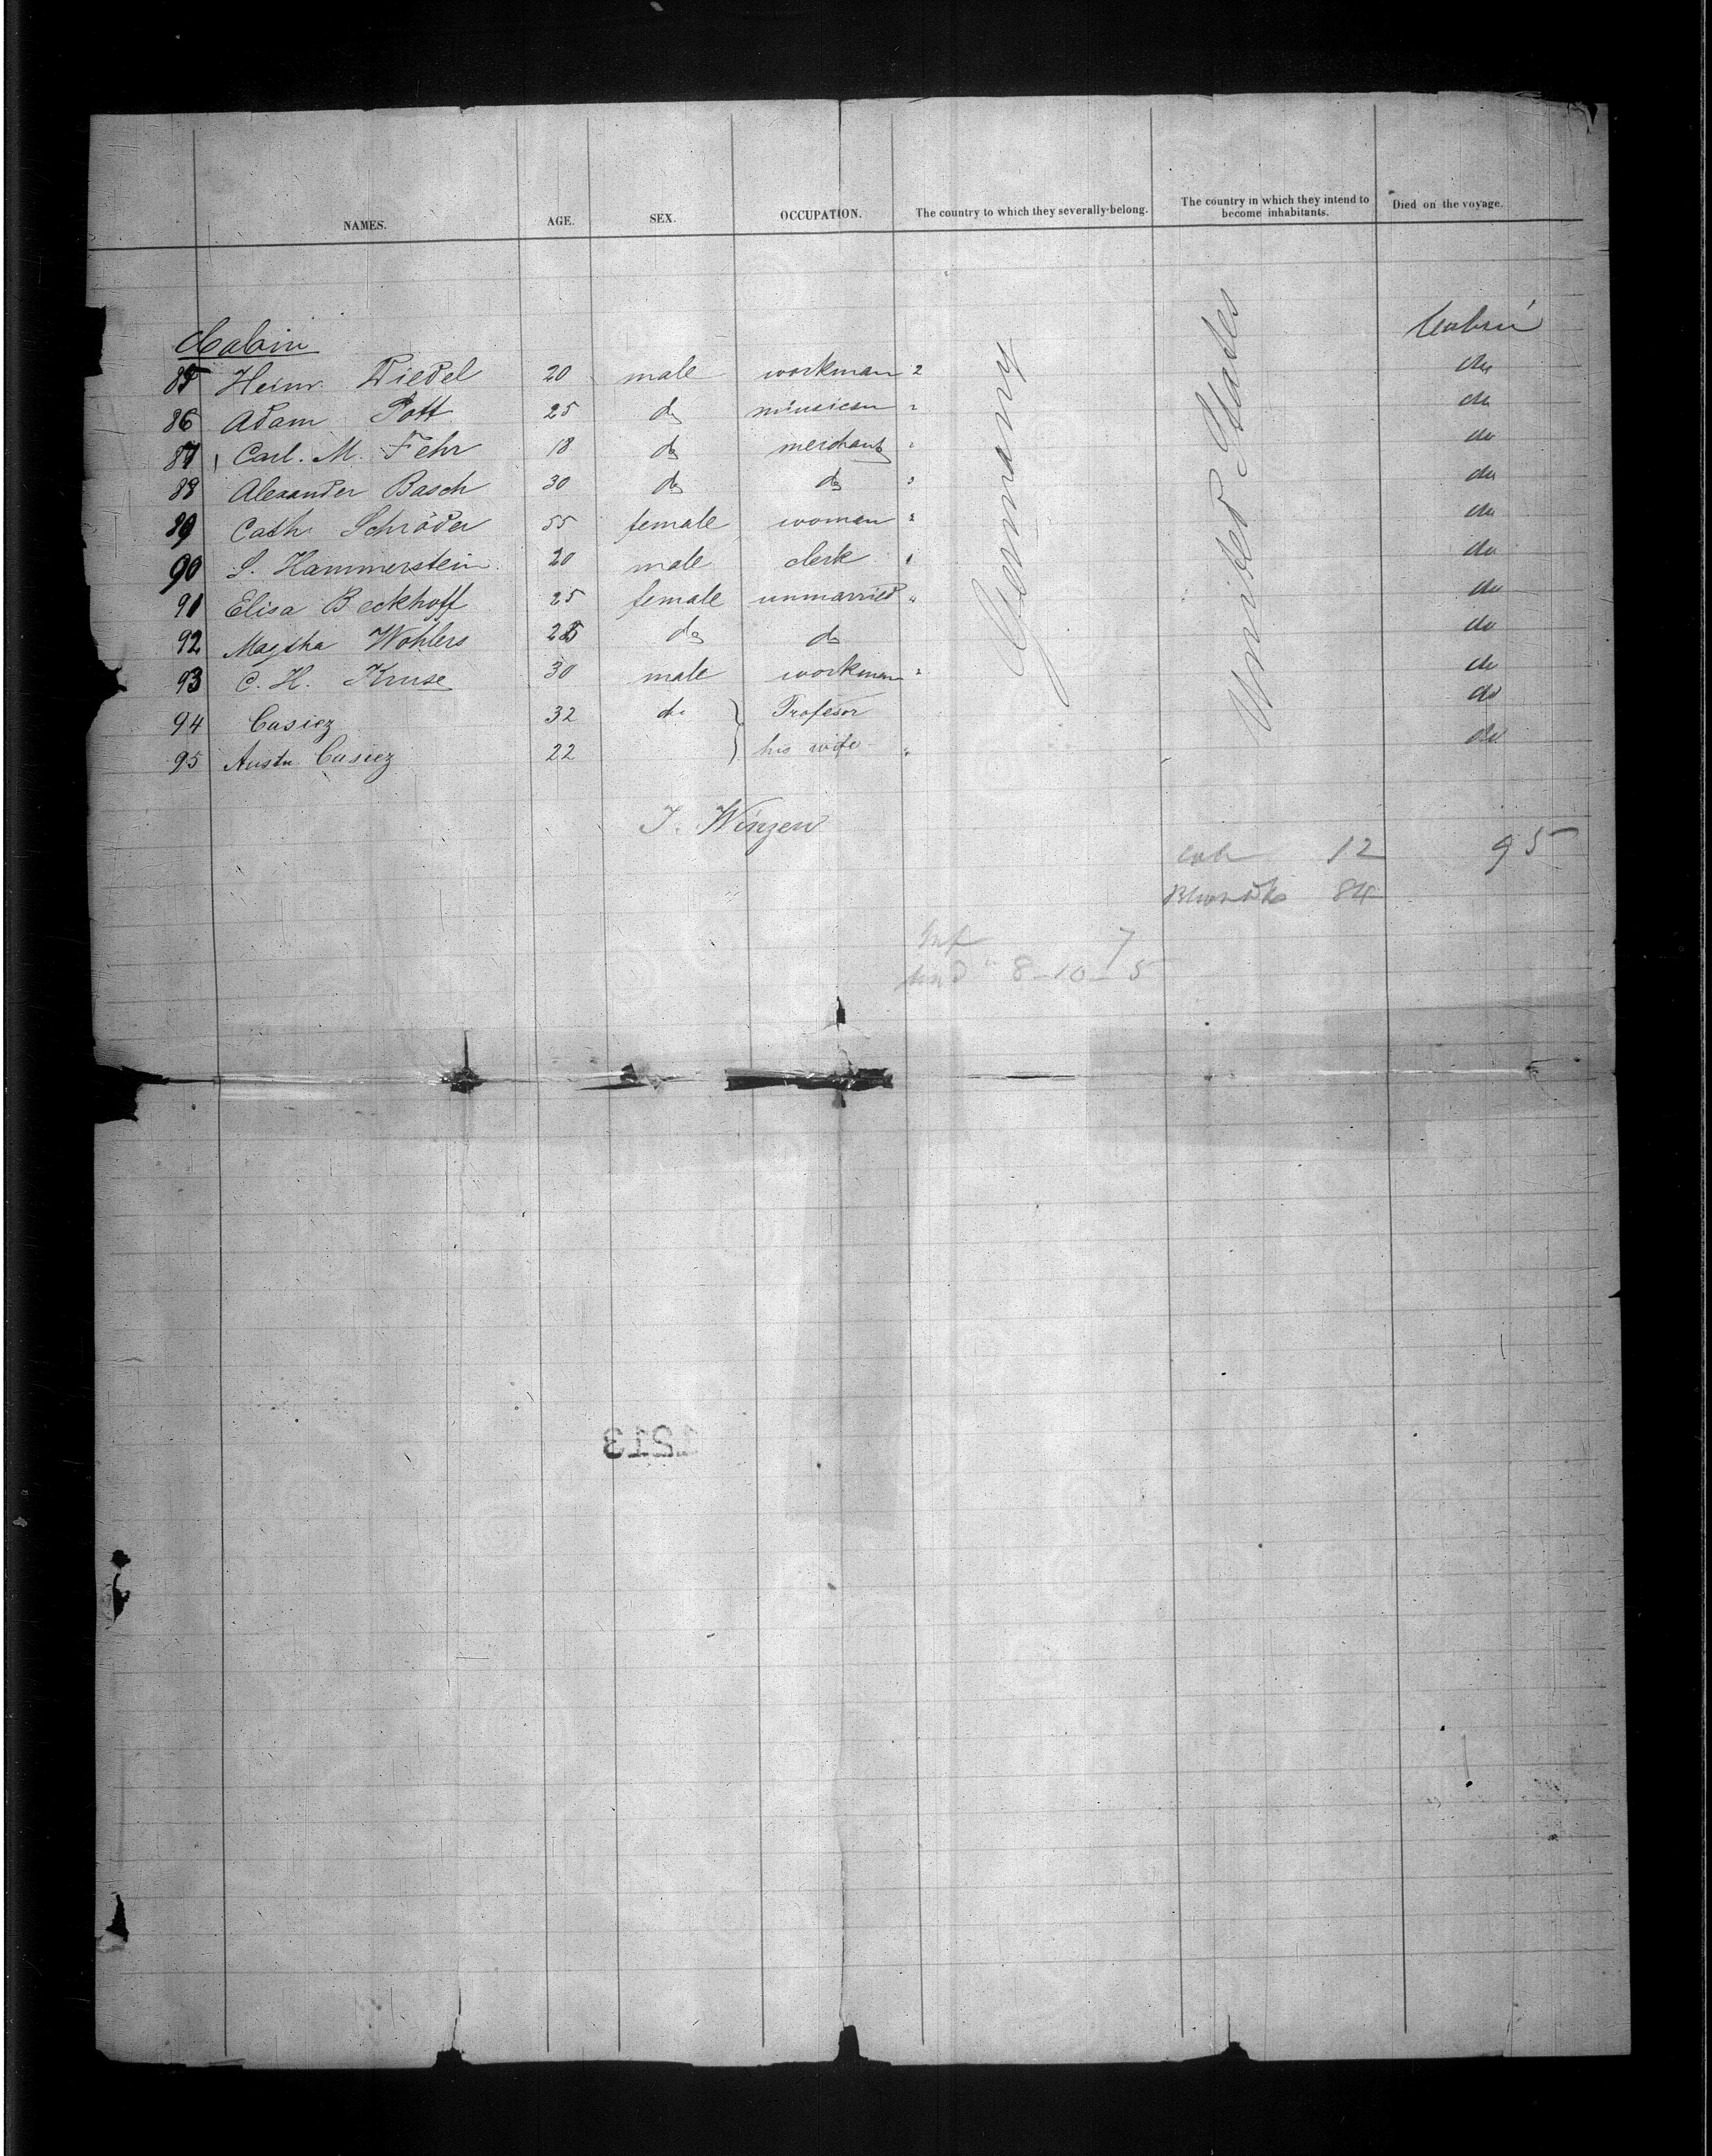 NAMES. AGE. SEX. OCCUPATION. The country to which they severally belong. The country in which they intend to become inhabitants. Died on the voyage.
Cabin Cabin
85 Heinr. Diedel 20 male workman do
86 Adam Pott 25 do musician do
87 Carl. M. Fehr 18 do merchant do
88 Alexander Basch 30 do do do
89 Cath. Schröder 55 female woman do
90 S. Hammerstein 20 male clerk do
91 Elisa Beckhoff 25 female unmarried do
92 Wohlers do do do
93 C. H. Kruse 30 male workman do
94 Casiez 32 do Profesor do
95 Casiez 22 his wife do
Germany
United States
J. Winzen
Cab 12 95
84
Inf 7
8-10-5
1213